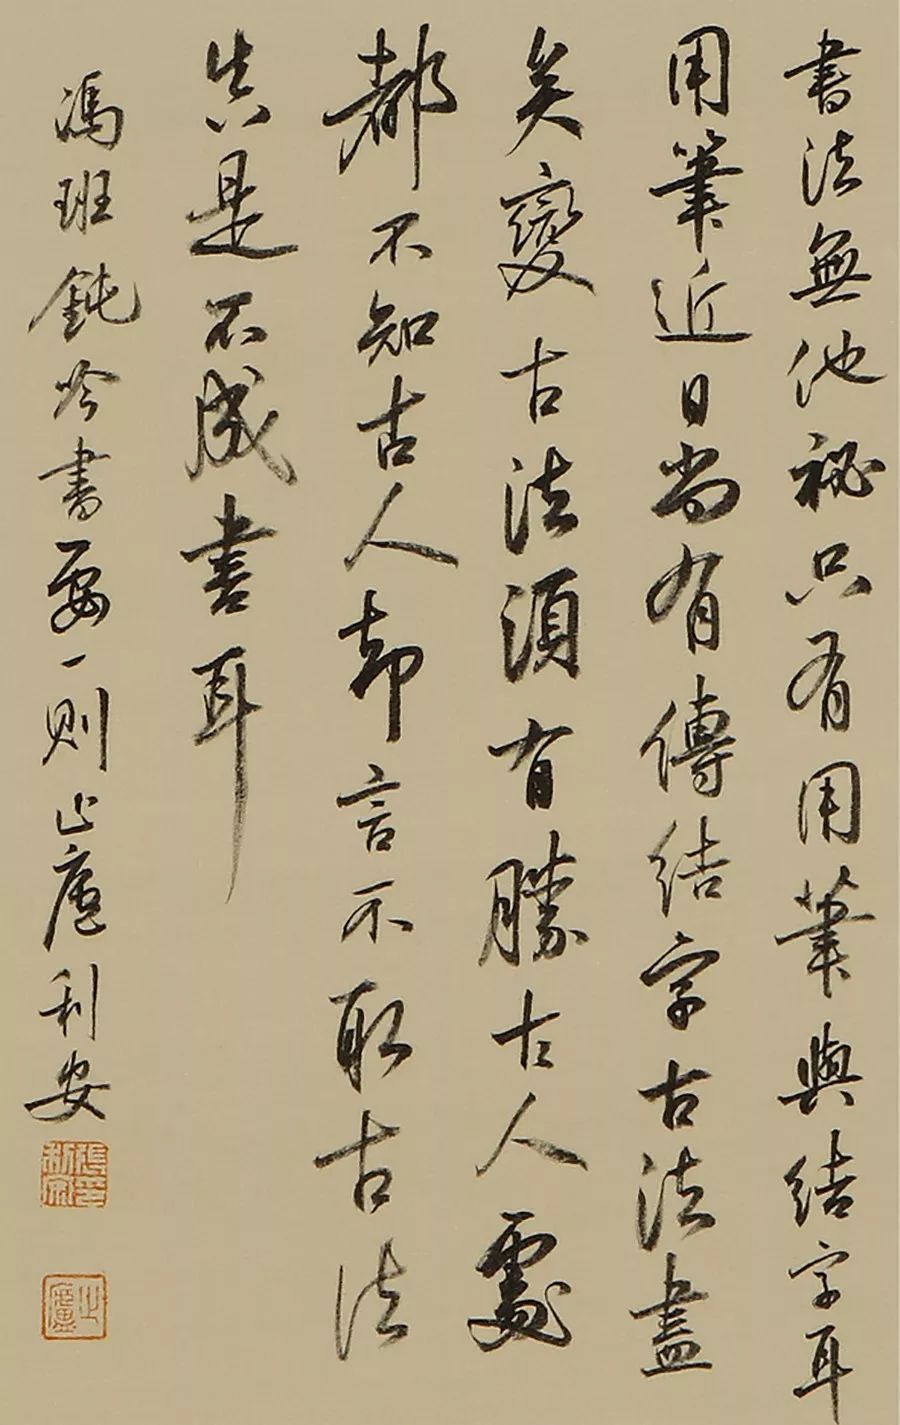 書法無他祕只有用筆與結字耳
用筆近日尚有傳結字古法盡
矣變古法須有勝古人處
都不知古人却言不取古法
真是不成書耳
馮班鈍吟書要一則止廬利安
止廬